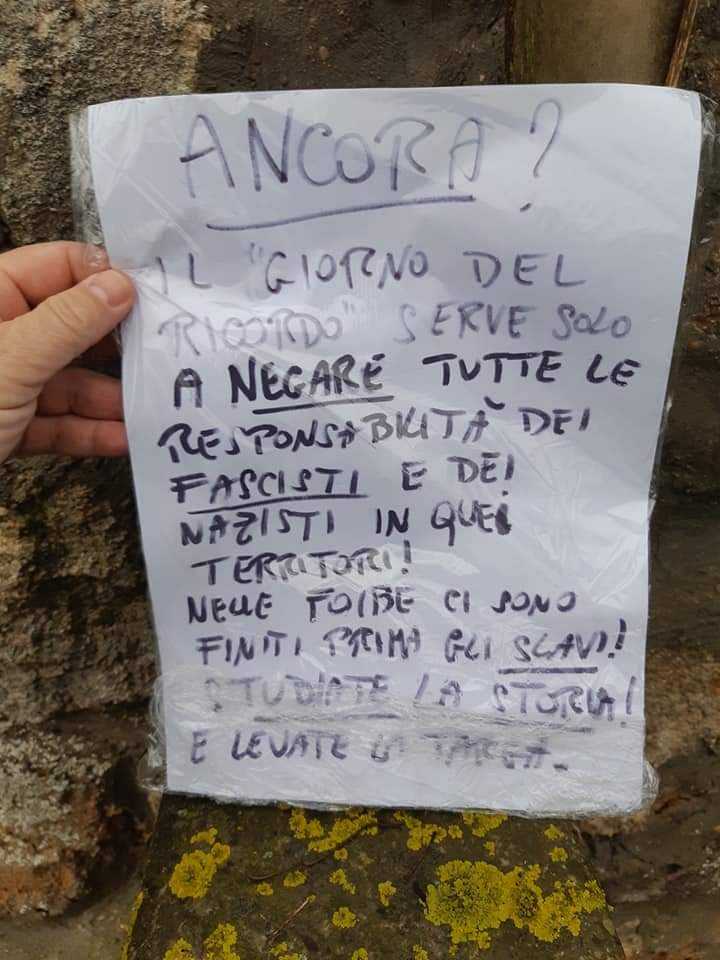 ANCORA?
IL "GIORNO DEL
RICORDO" SERVE SOLO
A NEGARE TUTTE LE
RESPONSABILITÀ DEI
FASCISTI E DEI
NAZISTI IN QUEI
TERRITORI!
NELLE FOIBE CI SONO
FINITI PRIMA GLI SLAVI!
STUDIATE LA STORIA!
E LEVATE LA TARGA.